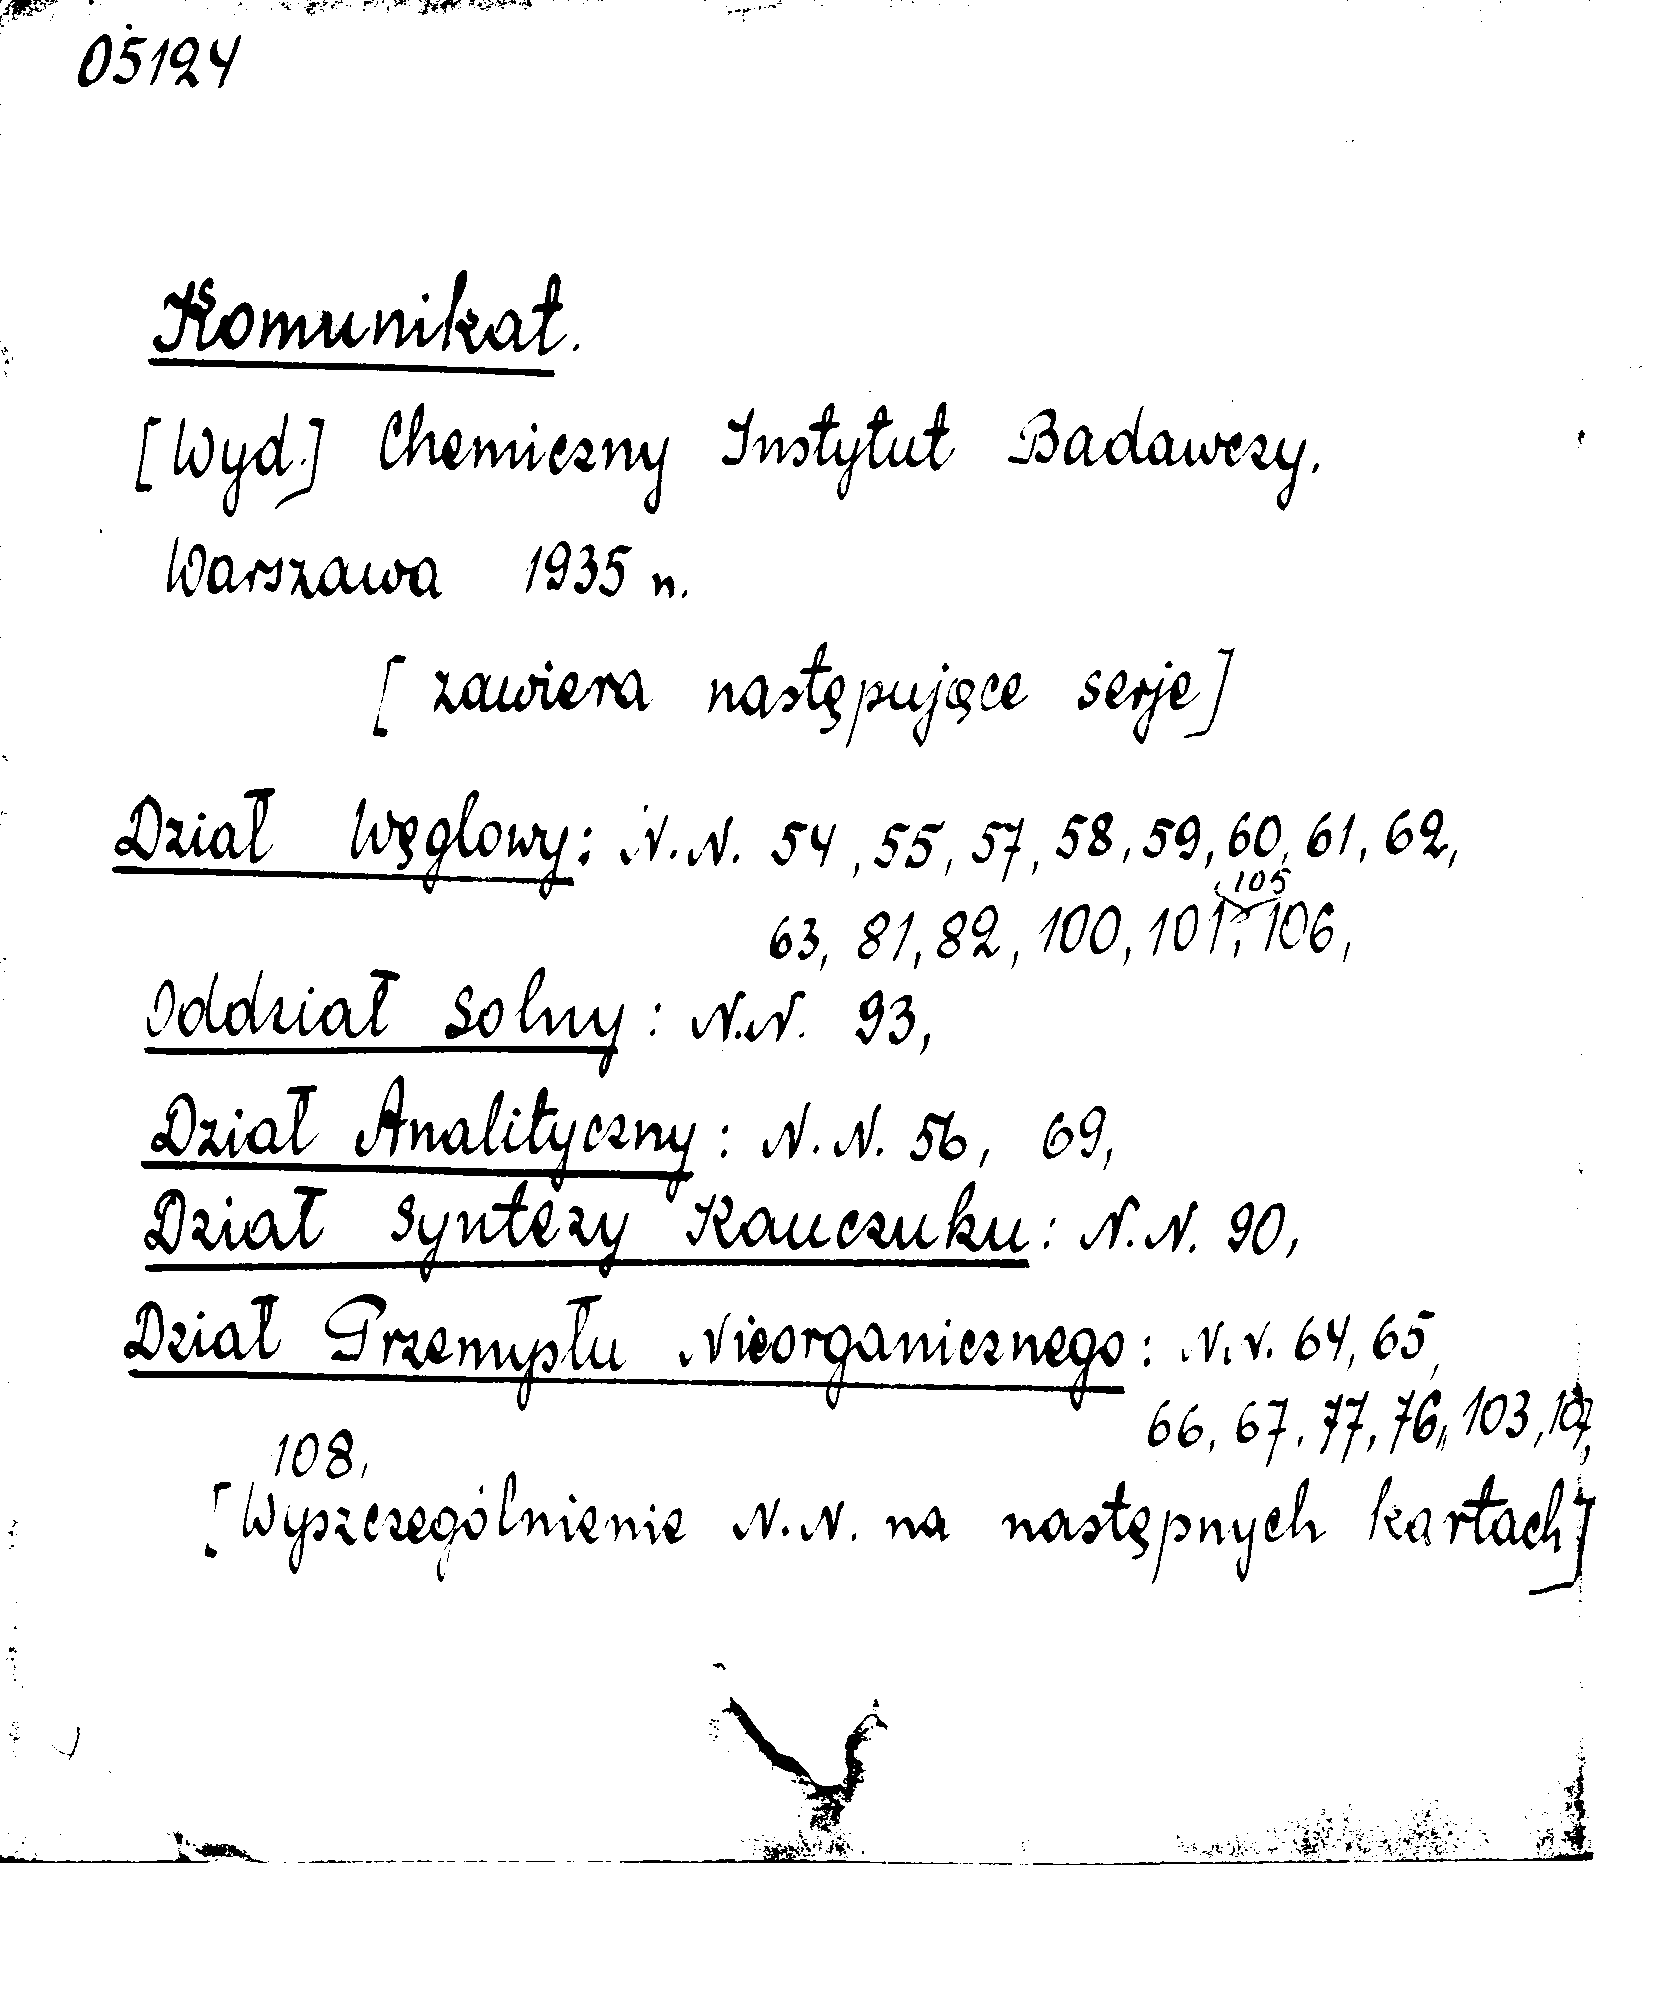 05124
Komunikat.
[Wyd.] Chemiczny Instytut Badawczy.
Warszawa 1935 r.
[zawiera następujące serje]
Dział Węglowy: N.N. 54, 55, 57, 58, 59, 60, 61, 62,
63, 81, 82, 100, 101, 105, 106,
Oddział Solny: N.N. 93,
Dział Analityczny: N.N. 56, 69,
Dział Syntezy Kauczuku: N.N. 90,
Dział Przemysłu Nieorganicznego: N.N. 64, 65,
66, 67, 77, 76, 103, 107,
108,
[Wyszczególnienie N.N. na następnych kartach]